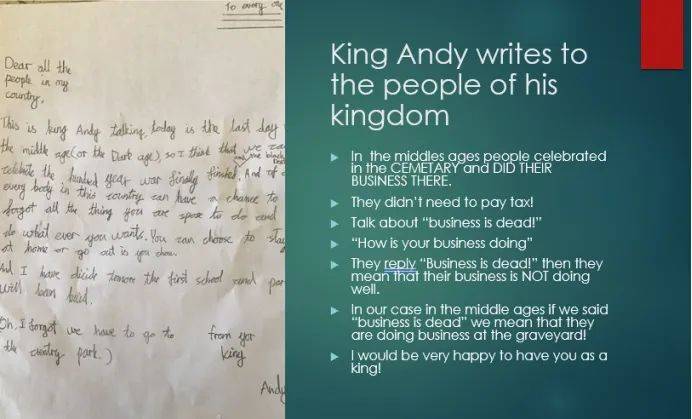 To every one
Dear all the
people in my
country,
This is king Andy talking, today is the last day
the middle age(or the Dark age), so I think that we can
celebrate the hundred year war finally finished. And
every body in this country can have a chance to
forgot all the thing you are spose to do and
do what ever you wants. You can choose to stay
at home or go out
I have decide the first school and par
will been buid.
Oh, I forgot we have to go to
the country park.)
from yor
king
Andy
King Andy writes to
the people of his
kingdom
In the middles ages people celebrated
in the CEMETARY and DID THEIR
BUSINESS THERE.
They didn't need to pay tax!
Talk about “business is dead!”
“How is your business doing”
They reply “Business is dead!” then they
mean that their business is NOT doing
well.
In our case in the middle ages if we said
“business is dead” we mean that they
are doing business at the graveyard!
I would be very happy to have you as a
king!